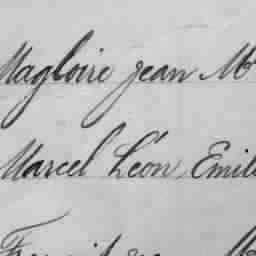 Magloire Jean M
Marcel Léon, Emil